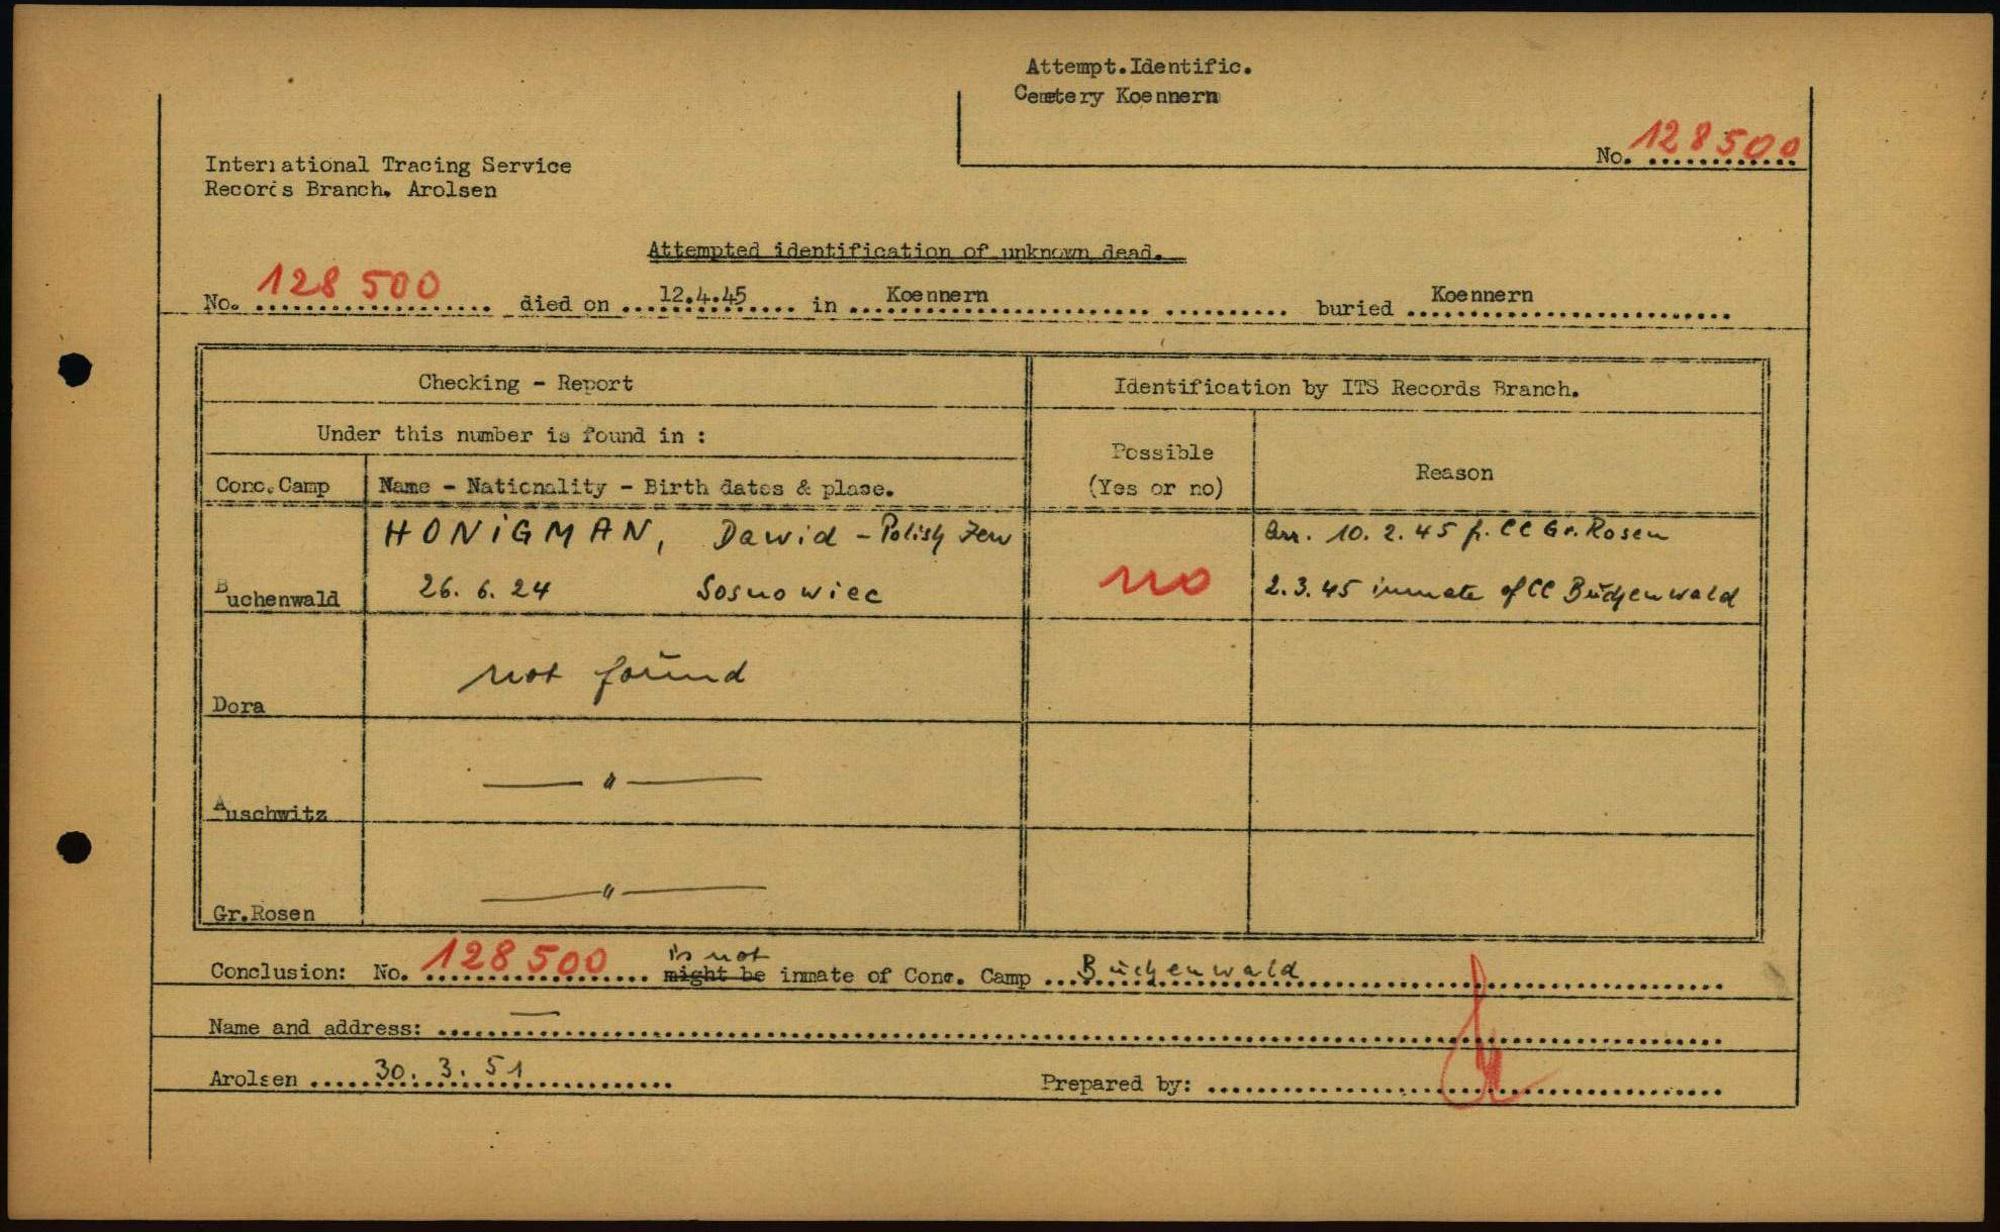 Attempt.Identific.
Cemetery Koennern
No. 128500
International Tracing Service
Records Branch. Arolsen
Attempted identification of unknown dead.
No. 128 500 died on 12.4.45 in Koennern buried Koennern
Checking - Report
Identification by ITS Records Branch.
Under this number is found in :
Possible
(Yes or no)
Reason
Conc.Camp
Name - Nationality - Birth dates & place.
HONIGMAN, Dawid - Polish Jew
26. 6. 24 Sosnowiec
Buchenwald
no
arr. 10. 2. 45 f. CC Gr. Rosen
2. 3. 45 inmate of CC Buchenwald
Dora
not found
Auschwitz
— " —
Gr.Rosen
— " —
Conclusion: No. 128 500 might be is not inmate of Conc. Camp Buchenwald
Name and address: —
Arolsen 30. 3. 51
Prepared by: